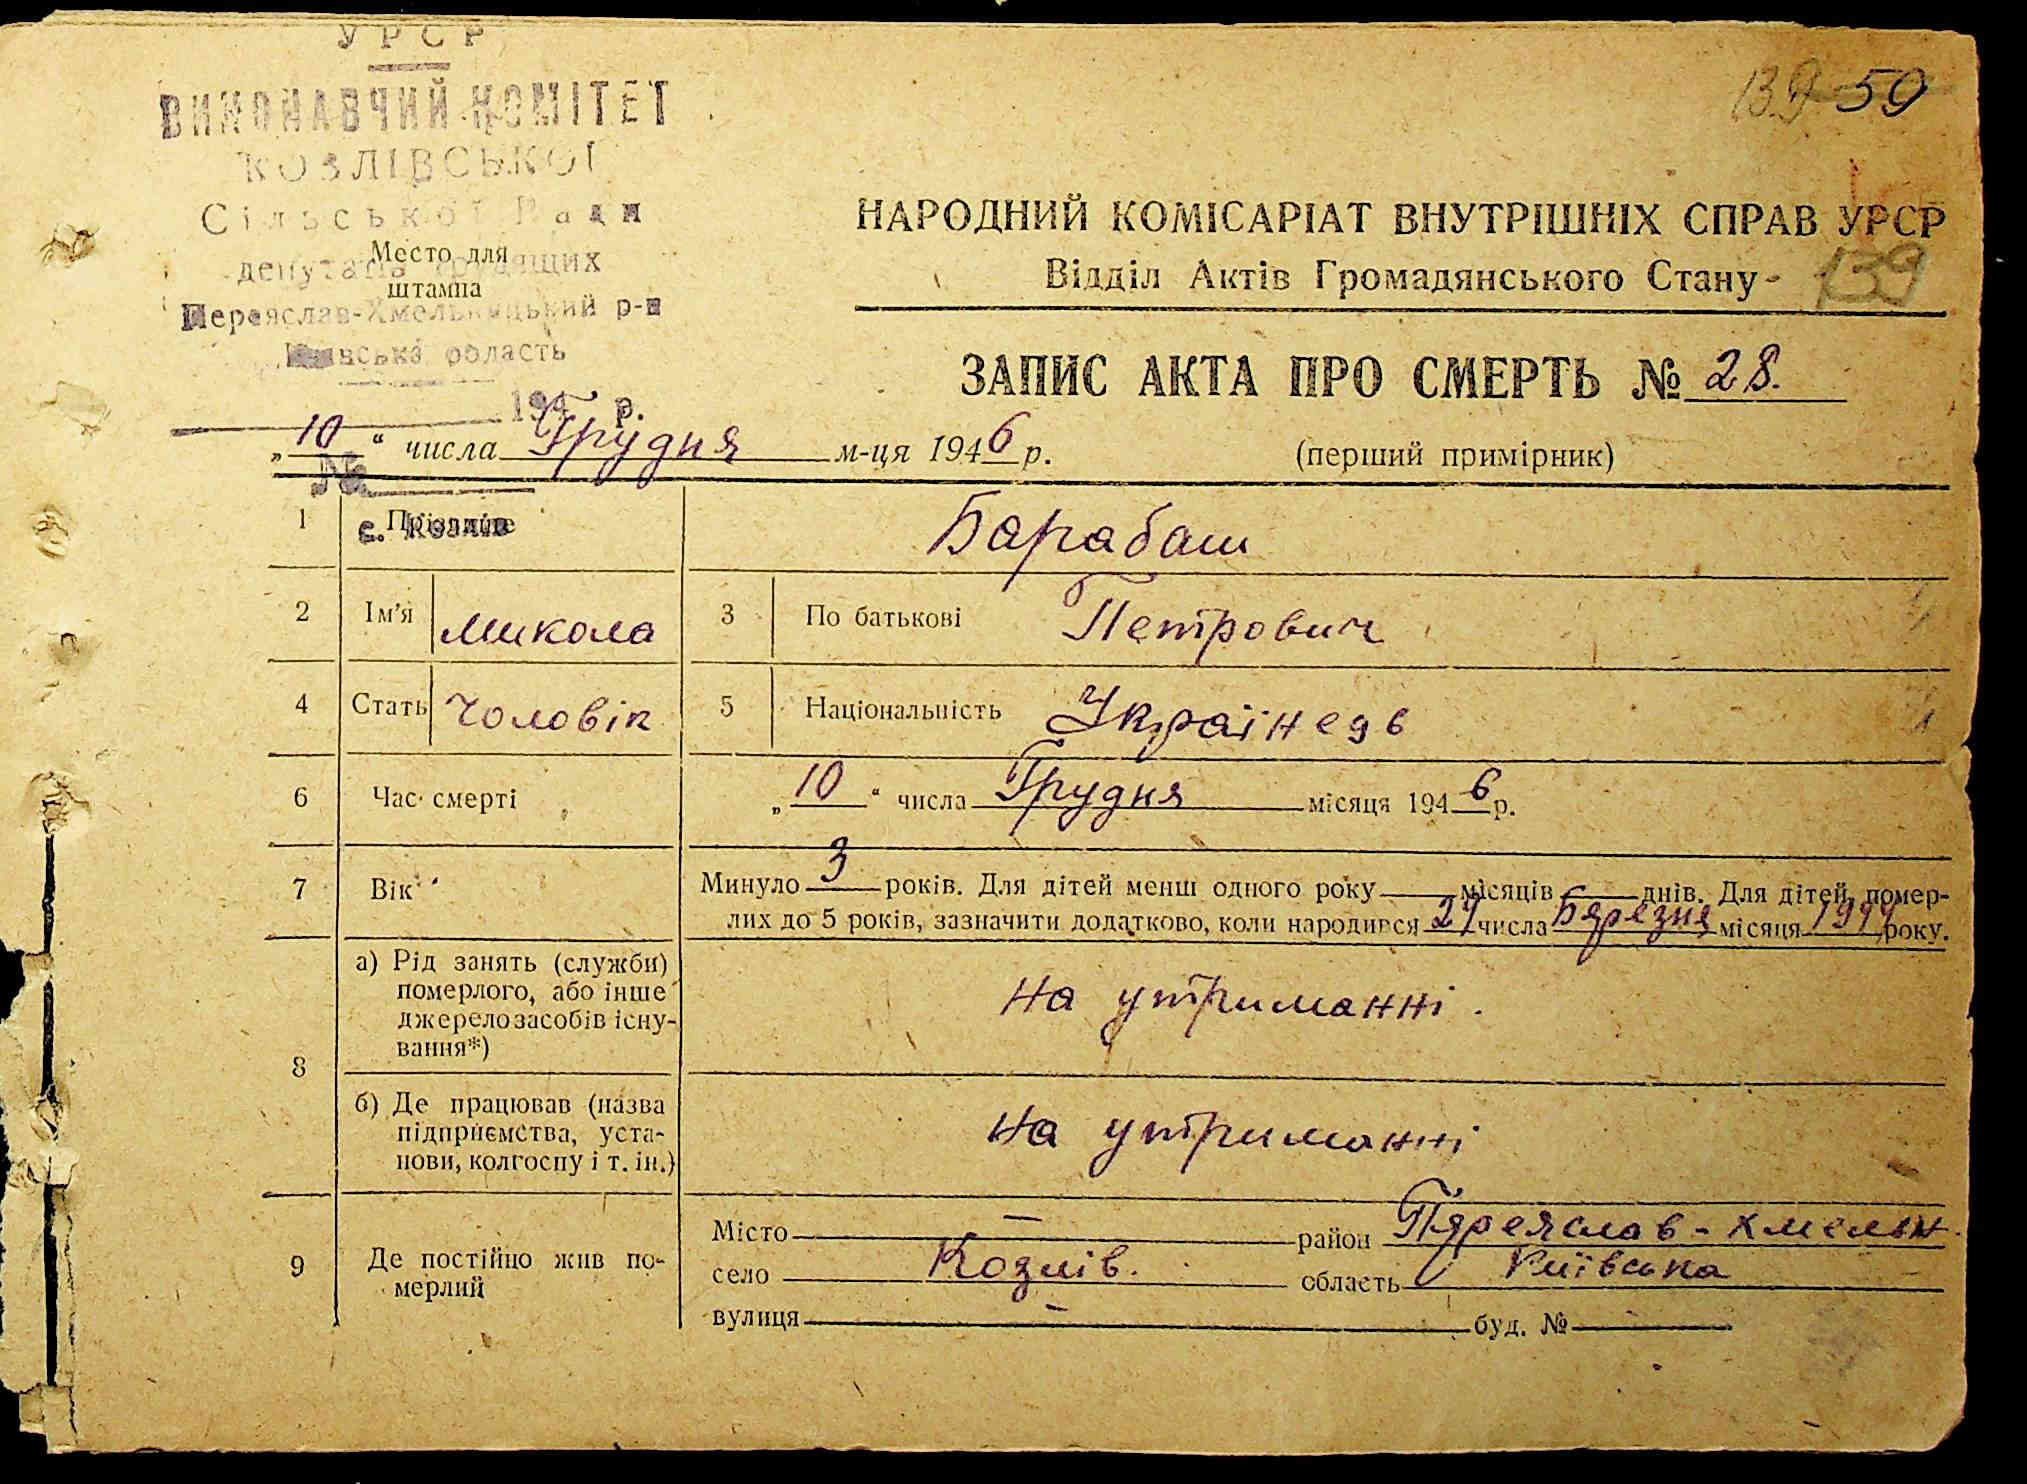 УРСР
139 59
ВИКОНАВЧИЙ КОМІТЕТ
КОЗЛІВСЬКОЇ
Сільської Ради
депутатів трудящих
Переяслав-Хмельницький р-н
Київська область
194 р.
№
с. Козлів
Место для
штампа
НАРОДНИЙ КОМІСАРІАТ ВНУТРІШНІХ СПРАВ УРСР
Відділ Актів Громадянського Стану
139
ЗАПИС АКТА ПРО СМЕРТЬ № 28.
„10“ числа Грудня м-ця 1946 р.
(перший примірник)
1 Прізвище Барабаш
2 Ім'я Микола 3 По батькові Петрович
4 Стать Чоловік 5 Національність
6 Час смерті „10“ числа Грудня місяця 1946 р.
7 Вік Минуло 3 років. Для дітей менш одного року місяців днів. Для дітей, помер-
лих до 5 років, зазначити додатково, коли народився числа місяця року.
8 а) Рід занять (служби)
померлого, або інше
джерело засобів існу-
вання*)
на утриманні.
б) Де працював (назва
підприємства, уста-
нови, колгоспу і т. ін.)
на утриманні
9 Де постійно жив по-
мерлий
Місто — район Пяреяслав-Хмельн.
село Козлів. область Київська
вулиця — буд. №